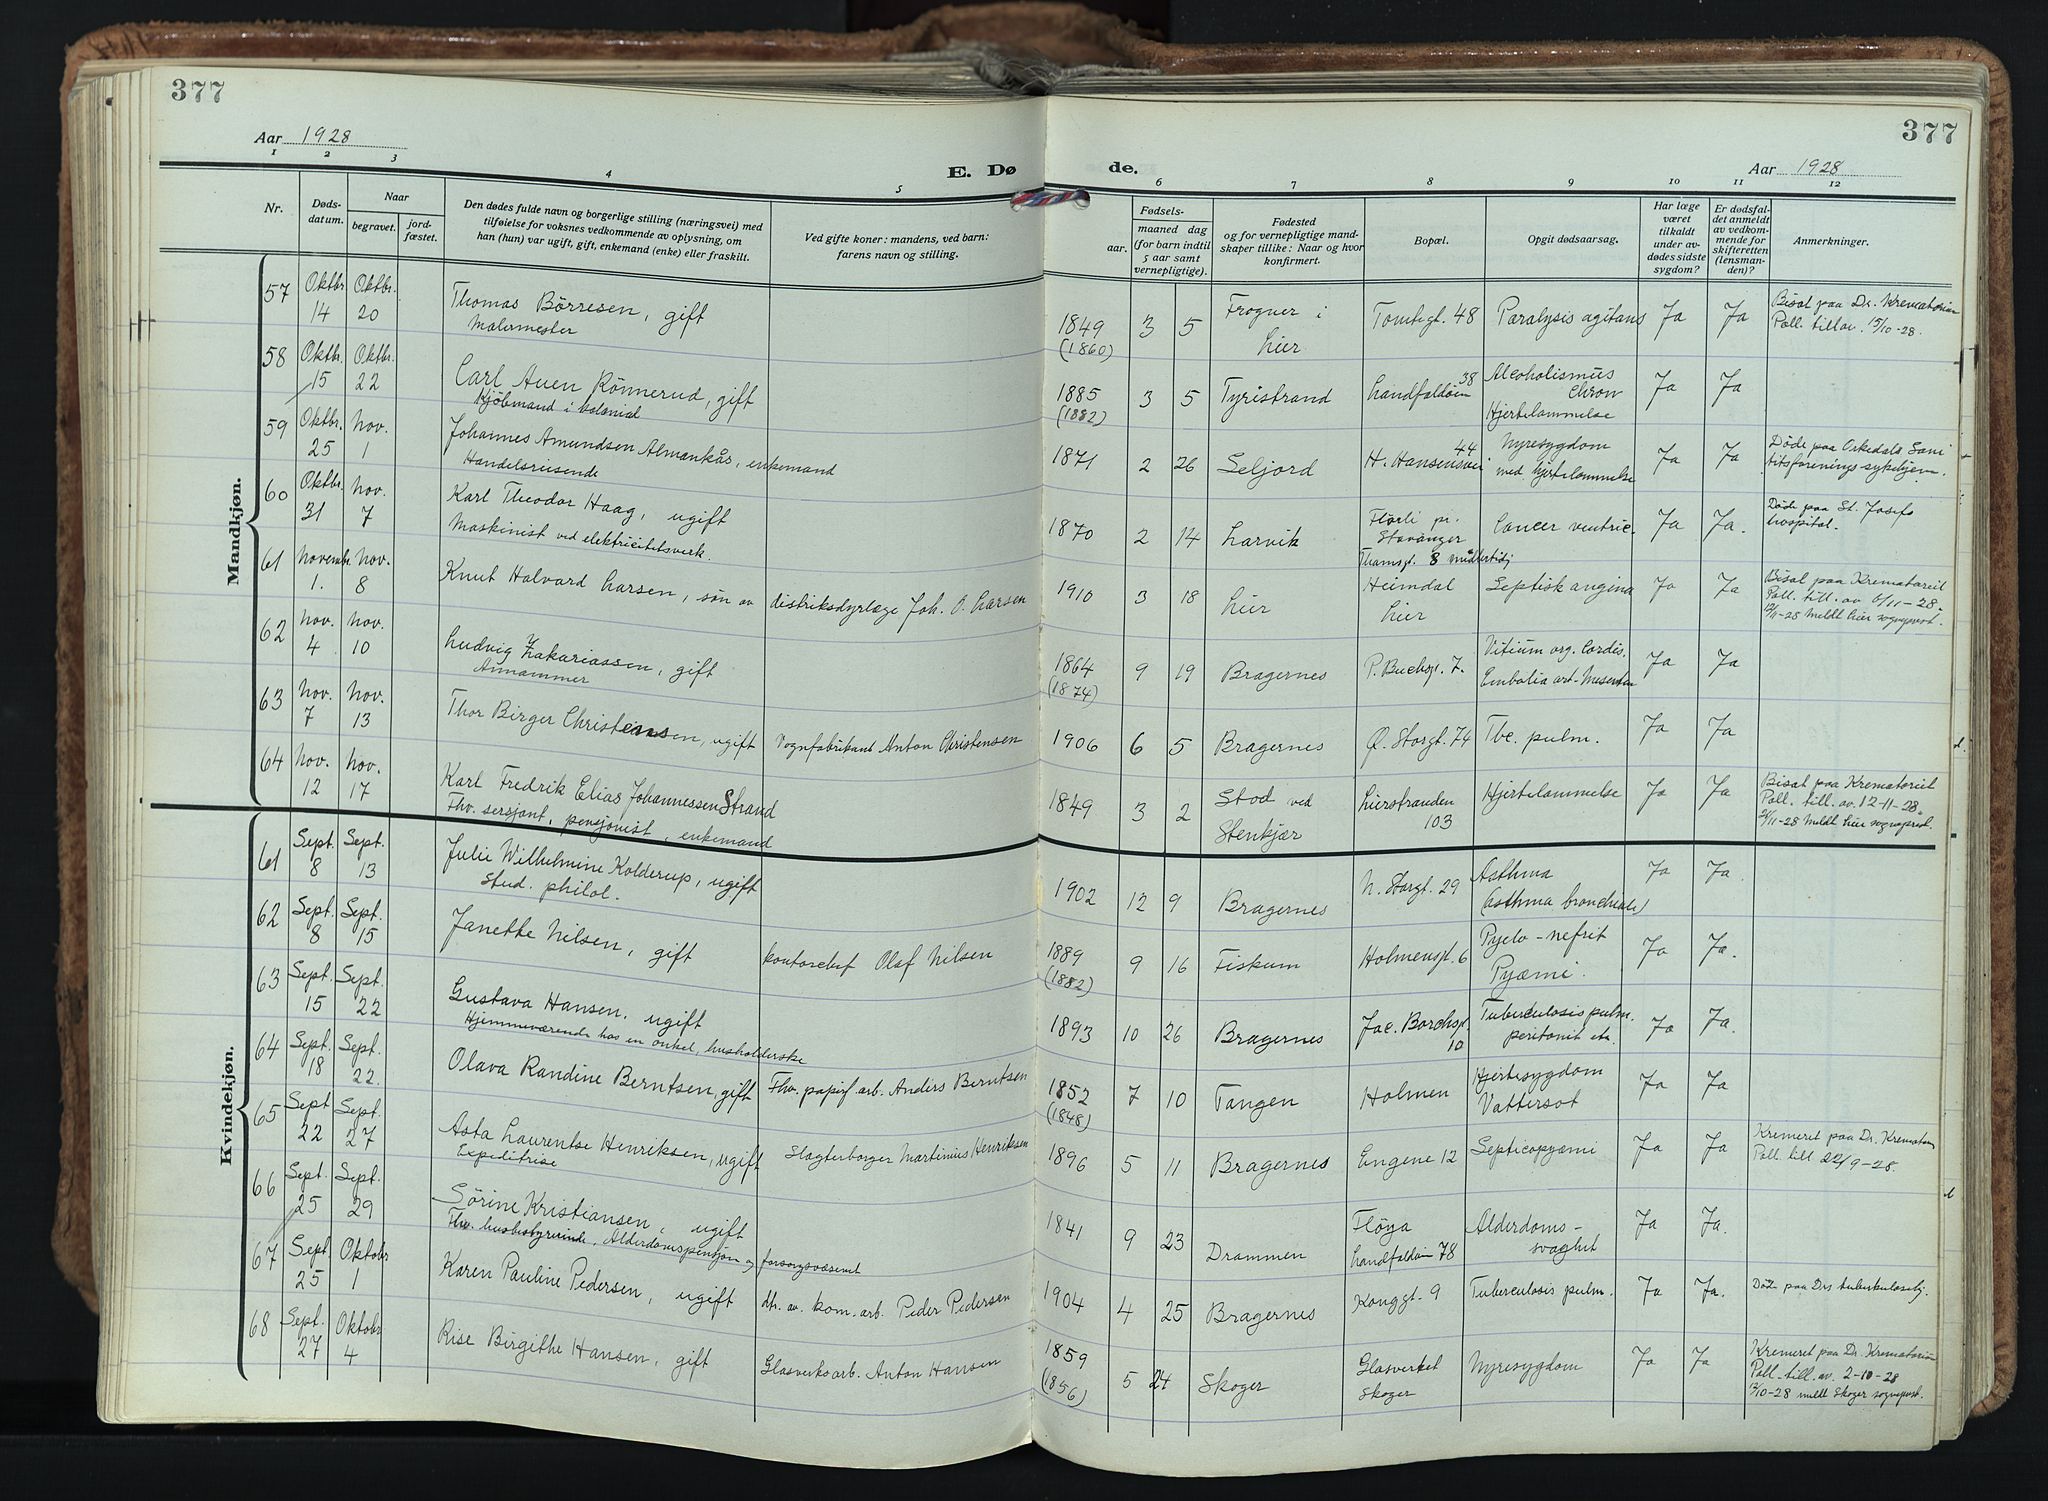 377
377
Aar 1928
Aar 1928
E. Dø
de.
1 2 3 4 5 6 7 8 9 10 11 12
Nr.
Døds-
datum.
Naar
begravet.
jord-
fæstet.
Den dødes fulde navn og borgerlige stilling (næringsvei) med
tilføielse for voksnes vedkommende av oplysning, om
han (hun) var ugift, gift, enkemand (enke) eller fraskilt.
Ved gifte koner: mandens, ved barn:
farens navn og stilling.
Fødsels-
aar. maaned dag
(for barn indtil
5 aar samt
vernepligtige).
Fødested
og for vernepligtige mand-
skaper tillike: Naar og hvor
konfirmert.
Bopæl.
Opgit dødsaarsag.
Har læge
været
tilkaldt
under av-
dødes sidste
sygdom?
Er dødsfal-
det anmeldt
av vedkom-
mende for
skifteretten
(lensman-
den)?
Anmerkninger.
Mandkjøn.
57 Oktbr. 14 Oktbr. 20 Thomas Börresen, gift
Malermester
1849 (1860) 3 5 Frogner i Lier Tomtegt. 48 Paralysis agitans Ja Ja Bisat paa Dr. Krematorium
Poll. tillat. 15/10-28.
58 Oktbr. 15 Oktbr. 22 Carl Auen Rönnerud, gift
Kjöbmand i kolonial
1885 (1882) 3 5 Tyristrand Landfaldöien 38 Alcoholismus Chron
Hjertelammelse Ja Ja
59 Oktbr. 25 Nov. 1 Johannes Amundsen Almankås, enkemand
Handelsreisende
1871 2 26 Seljord H. Hansensvei 44 Nyresygdom
med hjertelammelse Ja Ja Døde paa Orkedals Sani
titsforenings sykehjem.
60 Oktbr. 31 Nov. 7 Karl Theodor Haag, ugift
Maskinist ved elektricitetsverk
1870 2 14 Larvik Flörli pr. Stavanger
Thamsgt. 8 midlertidig Cancer ventric. Ja Ja. Døde paa St. Josefs
hospital.
61 November 1. Nov. 8 Knut Halvard Larsen, søn av distriksdyrlæge Joh. O. Larsen
1910 3 18 Lier Heimdal Lier Septisk angina Ja Ja Bisat paa Krematoriet
Poll. till. av 6/11-28.
12/11-28 Meldt Lier sogneprest.
62 Nov. 4 Nov. 10 Ludvig Zakariassen, gift
1864 (1874) 9 19 Bragernes P. Buchsgt. 7. Vitium org. Cordis.
Embolia art. Mesenten Ja Ja
63 Nov. 7 Nov. 13 Thor Birger Christensen, ugift Vognfabrikant Anton Christensen
1906 6 5 Bragernes Ø. Storgt. 74 Tbc. pulm. Ja Ja
64 Nov. 12 Nov. 17 Karl Fredrik Elias Johannessen Strand
Fhv. sersjant, pensjonist, enkemand
1849 3 2 Stod ved Stenkjær Lierstranden 103 Hjertelammelse Ja Ja Bisat paa Krematoriet
Poll. till. av. 12-11-28.
Meldt Lier sogneprest.
Kvindekjøn.
61 Sept. 8 Sept. 13 Julie Wilhelmine Kolderup, ugift
Stud. philol.
1902 12 9 Bragernes N. Storgt. 29 Asthma
(Asthma bronchiale) Ja Ja.
62 Sept. 8 Sept. 15 Janette Nilsen, gift kontorchef Olaf Nilsen
1889 (1882) 9 16 Fiskum Holmensgt. 6 Pyelo-nefrit
Pyæmi. Ja Ja.
63 Sept. 15 Sept. 22 Gustava Hansen, ugift
Hjemmeværende hos en onkel, husholderske
1893 10 26 Bragernes Jac. Borchsgt. 10 Tuberculosis pulm.
peritonit etc. Ja Ja.
64 Sept. 18 Sept. 22. Olava Randine Berntsen, gift Fhv. papirf. arb. Anders Berntsen
1852 (1848) 7 10 Tangen Holmen Hjertesygdom
Vattersot Ja Ja
65 Sept 22 Sept. 27 Asta Laurentse Henriksen, ugift Slagterborger Martinius Henriksen
Expeditrise
1896 5 11 Bragernes Engene 12 Septicopyæmi Ja Ja Kremeret paa Dr. Kremator
Poll. till 22/9-28.
66 Sept. 25 Sept. 29 Sörine Kristiansen, ugift
Fhv. husbestyrerinde, Alderdomspensjon og forsorgsvæsenet
1841 9 23 Drammen Flöya
Landfaldöien 78 Alderdoms-
svaghet Ja Ja.
67 Sept 25 Oktobr 1 Karen Pauline Pedersen, ugift dtr. av kom. arb. Peder Pedersen
1904 4 25 Bragernes Konggt. 9 Tuberculosis pulm. Ja Ja. Döde paa Drs tuberkulosehj.
68 Sept. 27 Oktobr 4 Rise Birgithe Hansen, gift Glasverksarb. Anton Hansen
1859 (1856) 5 24 Skoger Glasverket Skoger Nyresygdom Ja Ja Kremeret paa Dr. Krematorium
Poll. till. av. 2-10-28
12/10-28 meldt Skoger sogneprest.